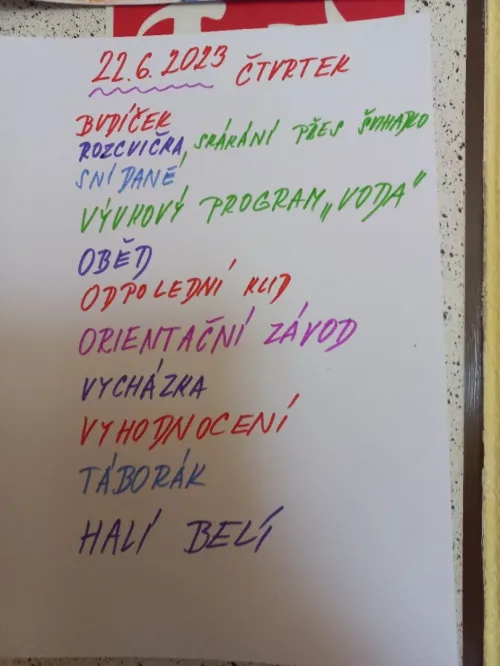 22.6.2023 ČTVRTEK
BUDÍČEK
ROZCVIČKA, SKÁKÁNÍ PŘES ŠVIHADLO
SNÍDANĚ
VÝUKOVÝ PROGRAM „VODA"
OBĚD
ODPOLEDNÍ KLID
ORIENTAČNÍ ZÁVOD
VYCHÁZKA
VYHODNOCENÍ
TÁBORÁK
HALÍ BELÍ